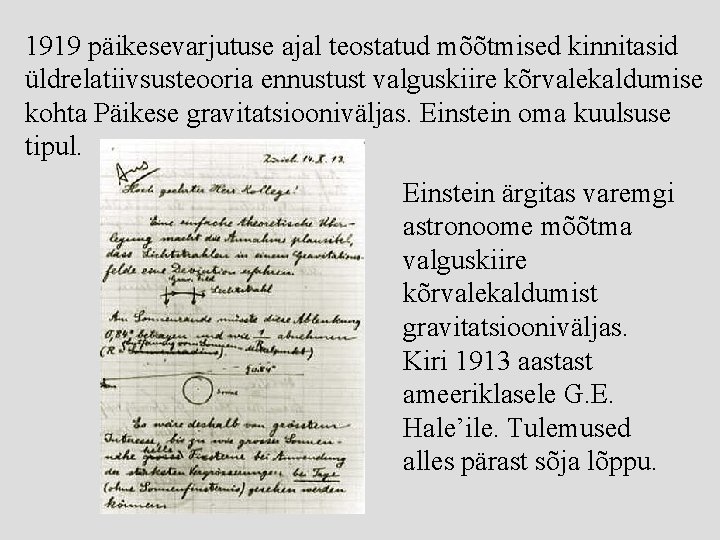 1919 päikesevarjutuse ajal teostatud mõõtmised kinnitasid
üldrelatiivsusteooria ennustust valguskiire kõrvalekaldumise
kohta Päikese gravitatsiooniväljas. Einstein oma kuulsuse
tipul.
Zürich. 14. X. 13.
Hoch geehrter Herr Kollege!
Eine einfache theoretische Über-
legung macht die Annahme plausibel,
dass Lichtstrahlen in einem Gravitations-
felde eine Deviation erfahren.
Grav. Feld
Lichtstrahl
Am Sonnenrande müsste diese Ablenkung
0,84" betragen und wie 1/R abnehmen
(R =
0,84"
Sonne
Es wäre deshalb von grösstem
Interesse, bis zu wie grosser Sonnen-
nähe helle Fixsterne bei Anwendung
der stärksten Vergrösserungen bei Tage
(ohne Sonnenfinsternis) gesehen werden
können
Einstein ärgitas varemgi
astronoome mõõtma
valguskiire
kõrvalekaldumist
gravitatsiooniväljas.
Kiri 1913 aastast
ameeriklasele G. E.
Hale’ile. Tulemused
alles pärast sõja lõppu.